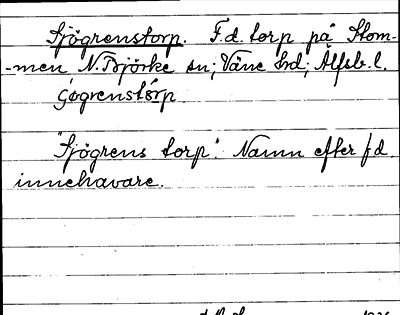 Sjögrenstorp. F.d. torp på Stom-
-men N. Björke sn; Väne hd; Älfsb. l.
Gøgrenstórp
"Sjögrens torp". Namn efter f.d.
innehavare.